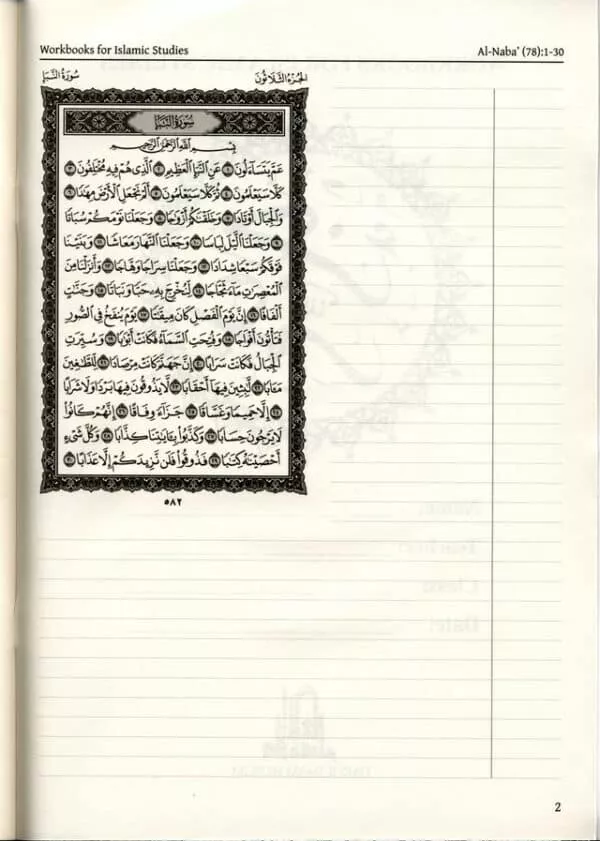 Workbooks for Islamic Studies
Al-Naba' (78):1-30
سُورَةُ النَّبَإِ
الجُزْءُ الثَّلَاثُونَ
سُورَةُ النَّبَإِ
بِسْمِ اللَّهِ الرَّحْمَٰنِ الرَّحِيمِ
عَمَّ يَتَسَاءَلُونَ ١ عَنِ النَّبَإِ الْعَظِيمِ ٢ الَّذِي هُمْ فِيهِ مُخْتَلِفُونَ ٣
كَلَّا سَيَعْلَمُونَ ٤ ثُمَّ كَلَّا سَيَعْلَمُونَ ٥ أَلَمْ نَجْعَلِ الْأَرْضَ مِهَادًا ٦
وَالْجِبَالَ أَوْتَادًا ٧ وَخَلَقْنَاكُمْ أَزْوَاجًا ٨ وَجَعَلْنَا نَوْمَكُمْ سُبَاتًا
٩ وَجَعَلْنَا اللَّيْلَ لِبَاسًا ١٠ وَجَعَلْنَا النَّهَارَ مَعَاشًا ١١ وَبَنَيْنَا
فَوْقَكُمْ سَبْعًا شِدَادًا ١٢ وَجَعَلْنَا سِرَاجًا وَهَّاجًا ١٣ وَأَنزَلْنَا مِنَ
الْمُعْصِرَاتِ مَاءً ثَجَّاجًا ١٤ لِّنُخْرِجَ بِهِ حَبًّا وَنَبَاتًا ١٥ وَجَنَّاتٍ
أَلْفَافًا ١٦ إِنَّ يَوْمَ الْفَصْلِ كَانَ مِيقَاتًا ١٧ يَوْمَ يُنفَخُ فِي الصُّورِ
فَتَأْتُونَ أَفْوَاجًا ١٨ وَفُتِحَتِ السَّمَاءُ فَكَانَتْ أَبْوَابًا ١٩ وَسُيِّرَتِ
الْجِبَالُ فَكَانَتْ سَرَابًا ٢٠ إِنَّ جَهَنَّمَ كَانَتْ مِرْصَادًا ٢١ لِّلطَّاغِينَ
مَآبًا ٢٢ لَّابِثِينَ فِيهَا أَحْقَابًا ٢٣ لَّا يَذُوقُونَ فِيهَا بَرْدًا وَلَا شَرَابًا
٢٤ إِلَّا حَمِيمًا وَغَسَّاقًا ٢٥ جَزَاءً وِفَاقًا ٢٦ إِنَّهُمْ كَانُوا
لَا يَرْجُونَ حِسَابًا ٢٧ وَكَذَّبُوا بِآيَاتِنَا كِذَّابًا ٢٨ وَكُلَّ شَيْءٍ
أَحْصَيْنَاهُ كِتَابًا ٢٩ فَذُوقُوا فَلَن نَّزِيدَكُمْ إِلَّا عَذَابًا ٣٠
٥٨٢
2